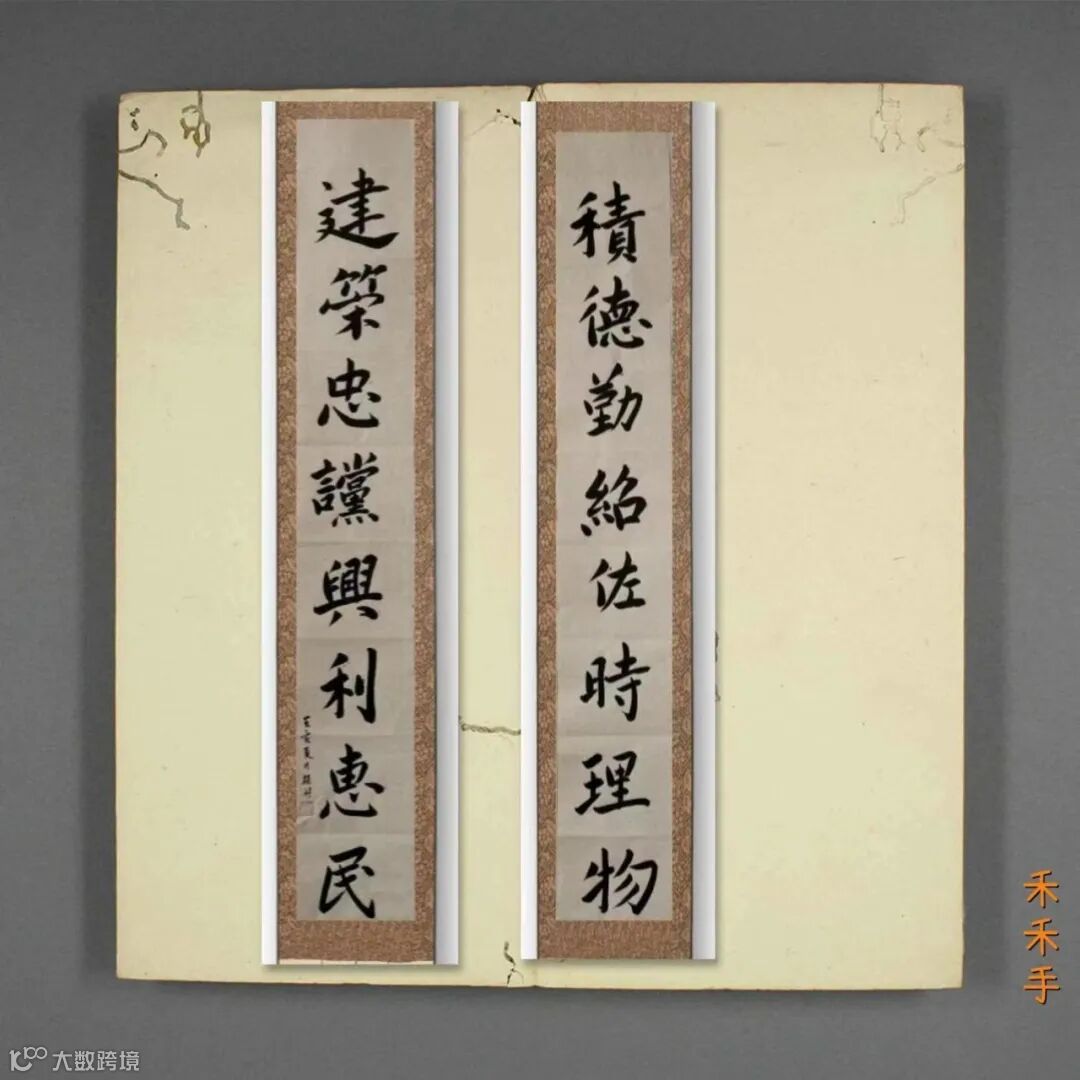 積德勤紹佐時理物
建策忠讜興利惠民
禾禾手
大数跨境